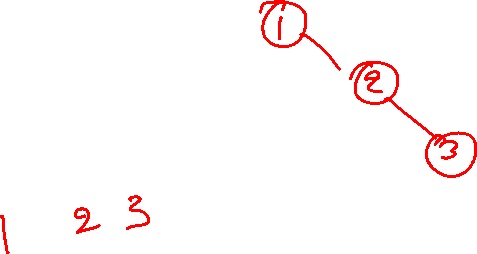 1
2
3
1 2 3